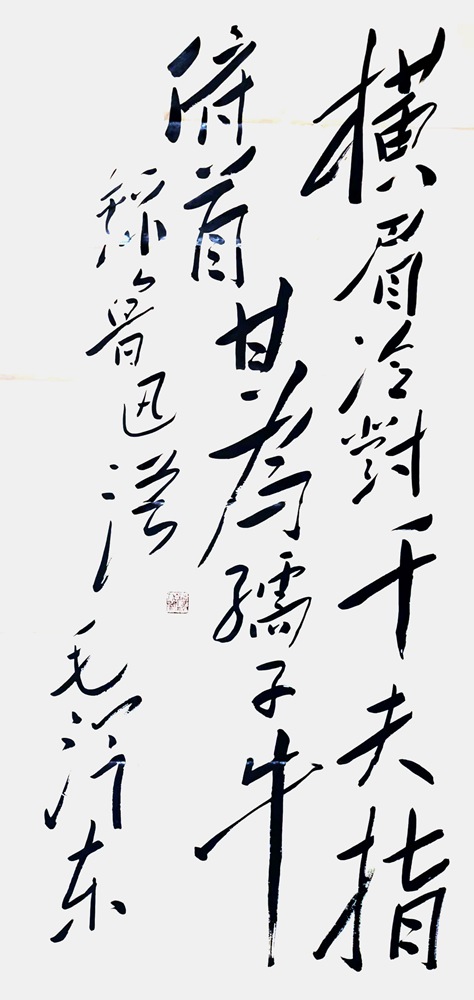 橫眉冷對千夫指
俯首甘為孺子牛
錄魯迅詩 毛澤东